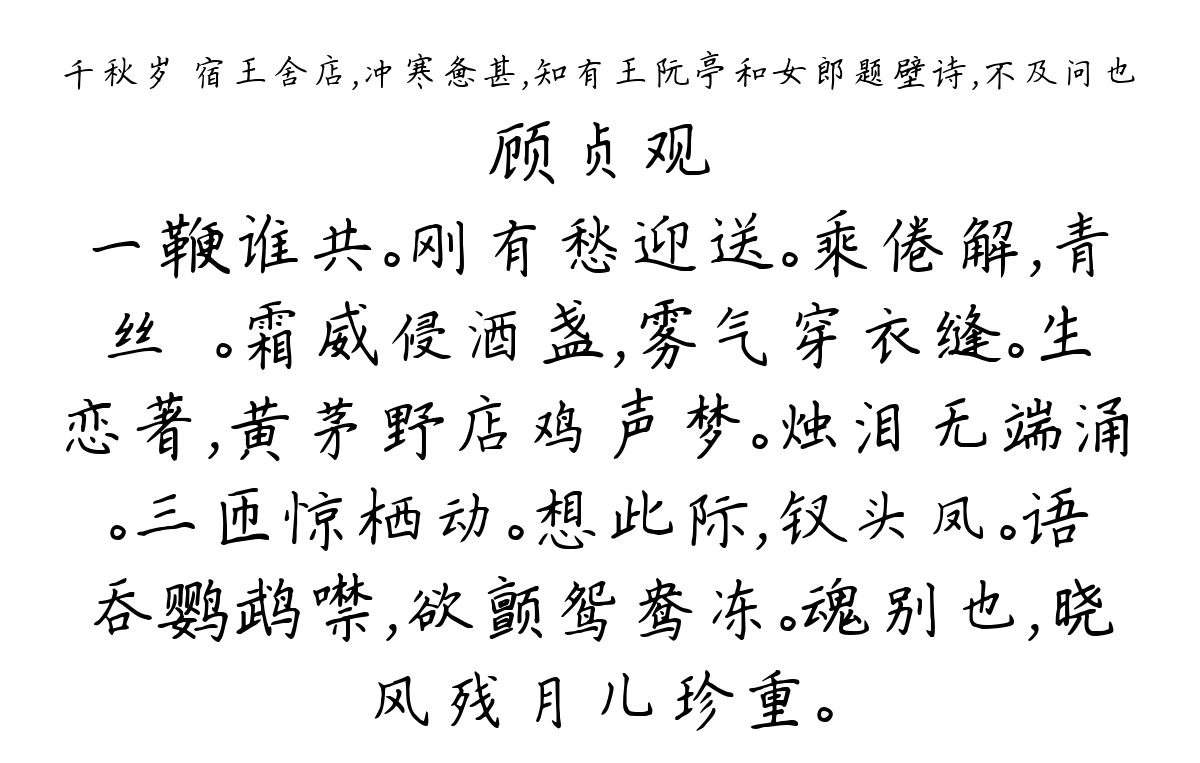 千秋岁 宿王舍店,冲寒惫甚,知有王阮亭和女郎题壁诗,不及问也
顾贞观
一鞭谁共。刚有愁迎送。乘倦解,青
丝 。霜威侵酒盏,雾气穿衣缝。生
恋著,黄茅野店鸡声梦。烛泪无端涌
。三匝惊栖动。想此际,钗头凤。语
吞鹦鹉噤,欲颤鸳鸯冻。魂别也,晓
风残月儿珍重。